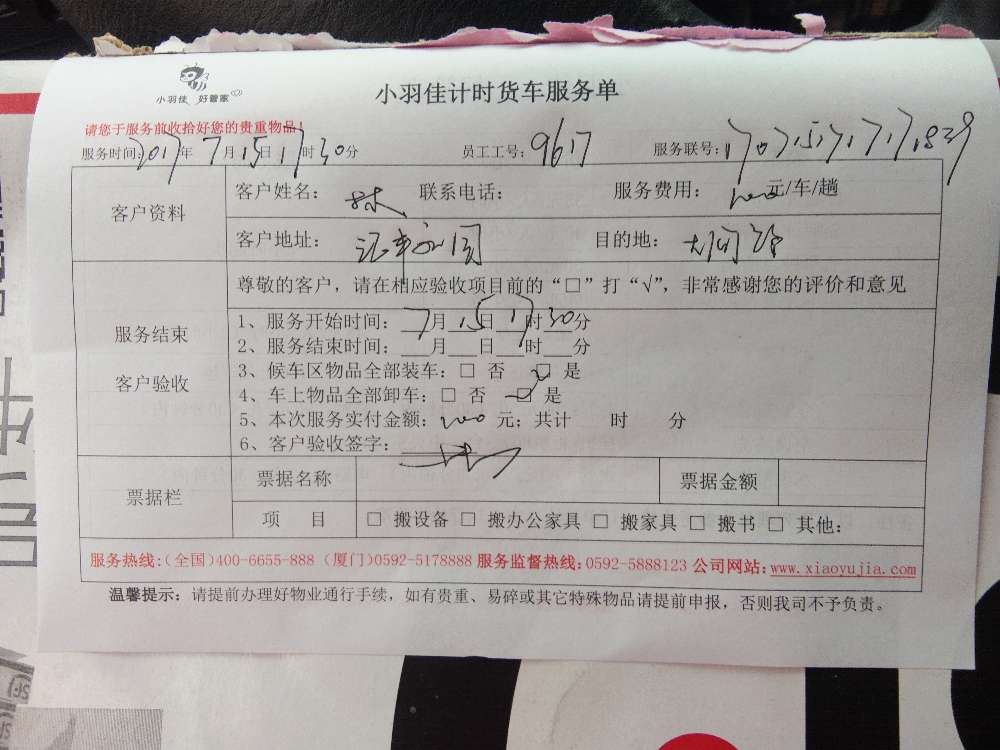 小羽佳 好管家
小羽佳计时货车服务单
请您于服务前收拾好您的贵重物品!
服务时间:2017年 7月15日17时30分 员工工号:9617 服务联号:
客户资料 客户姓名:林 联系电话: 服务费用: 元/车/趟
客户地址: 目的地:
尊敬的客户,请在相应验收项目前的“□”打“√”,非常感谢您的评价和意见
服务结束
客户验收
1、服务开始时间:7月15日17时30分
2、服务结束时间:___月___日___时___分
3、候车区物品全部装车:□ 否 □ 是
4、车上物品全部卸车:□ 否 □ 是
5、本次服务实付金额:200元;共计 时 分
6、客户验收签字:
票据栏 票据名称 票据金额
项 目 □ 搬设备 □ 搬办公家具 □ 搬家具 □ 搬书 □ 其他:
服务热线:(全国)400-6655-888 (厦门)0592-5178888 服务监督热线:0592-5888123 公司网站:www.xiaoyujia.com
温馨提示:请提前办理好物业通行手续,如有贵重、易碎或其它特殊物品请提前申报,否则我司不予负责。